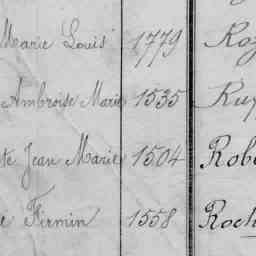 Marie Louis 1779
Ambroise Marie 1535
Jean Marie 1504 Rob
Firmin 1558 Roch